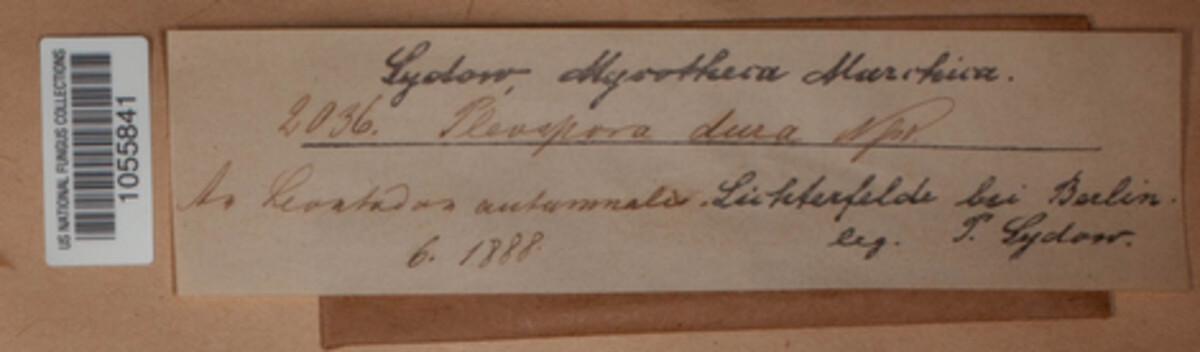 US NATIONAL FUNGUS COLLECTIONS
1055841
Sydow, Mycotheca Marchica.
2036. Pleospora dura Npl.
An Leontodon autumnalis. Lichterfelde bei Berlin.
6. 1888. leg. P. Sydow.